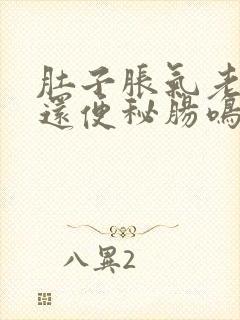 肚子脹氣老
還便秘腸鳴
八異2